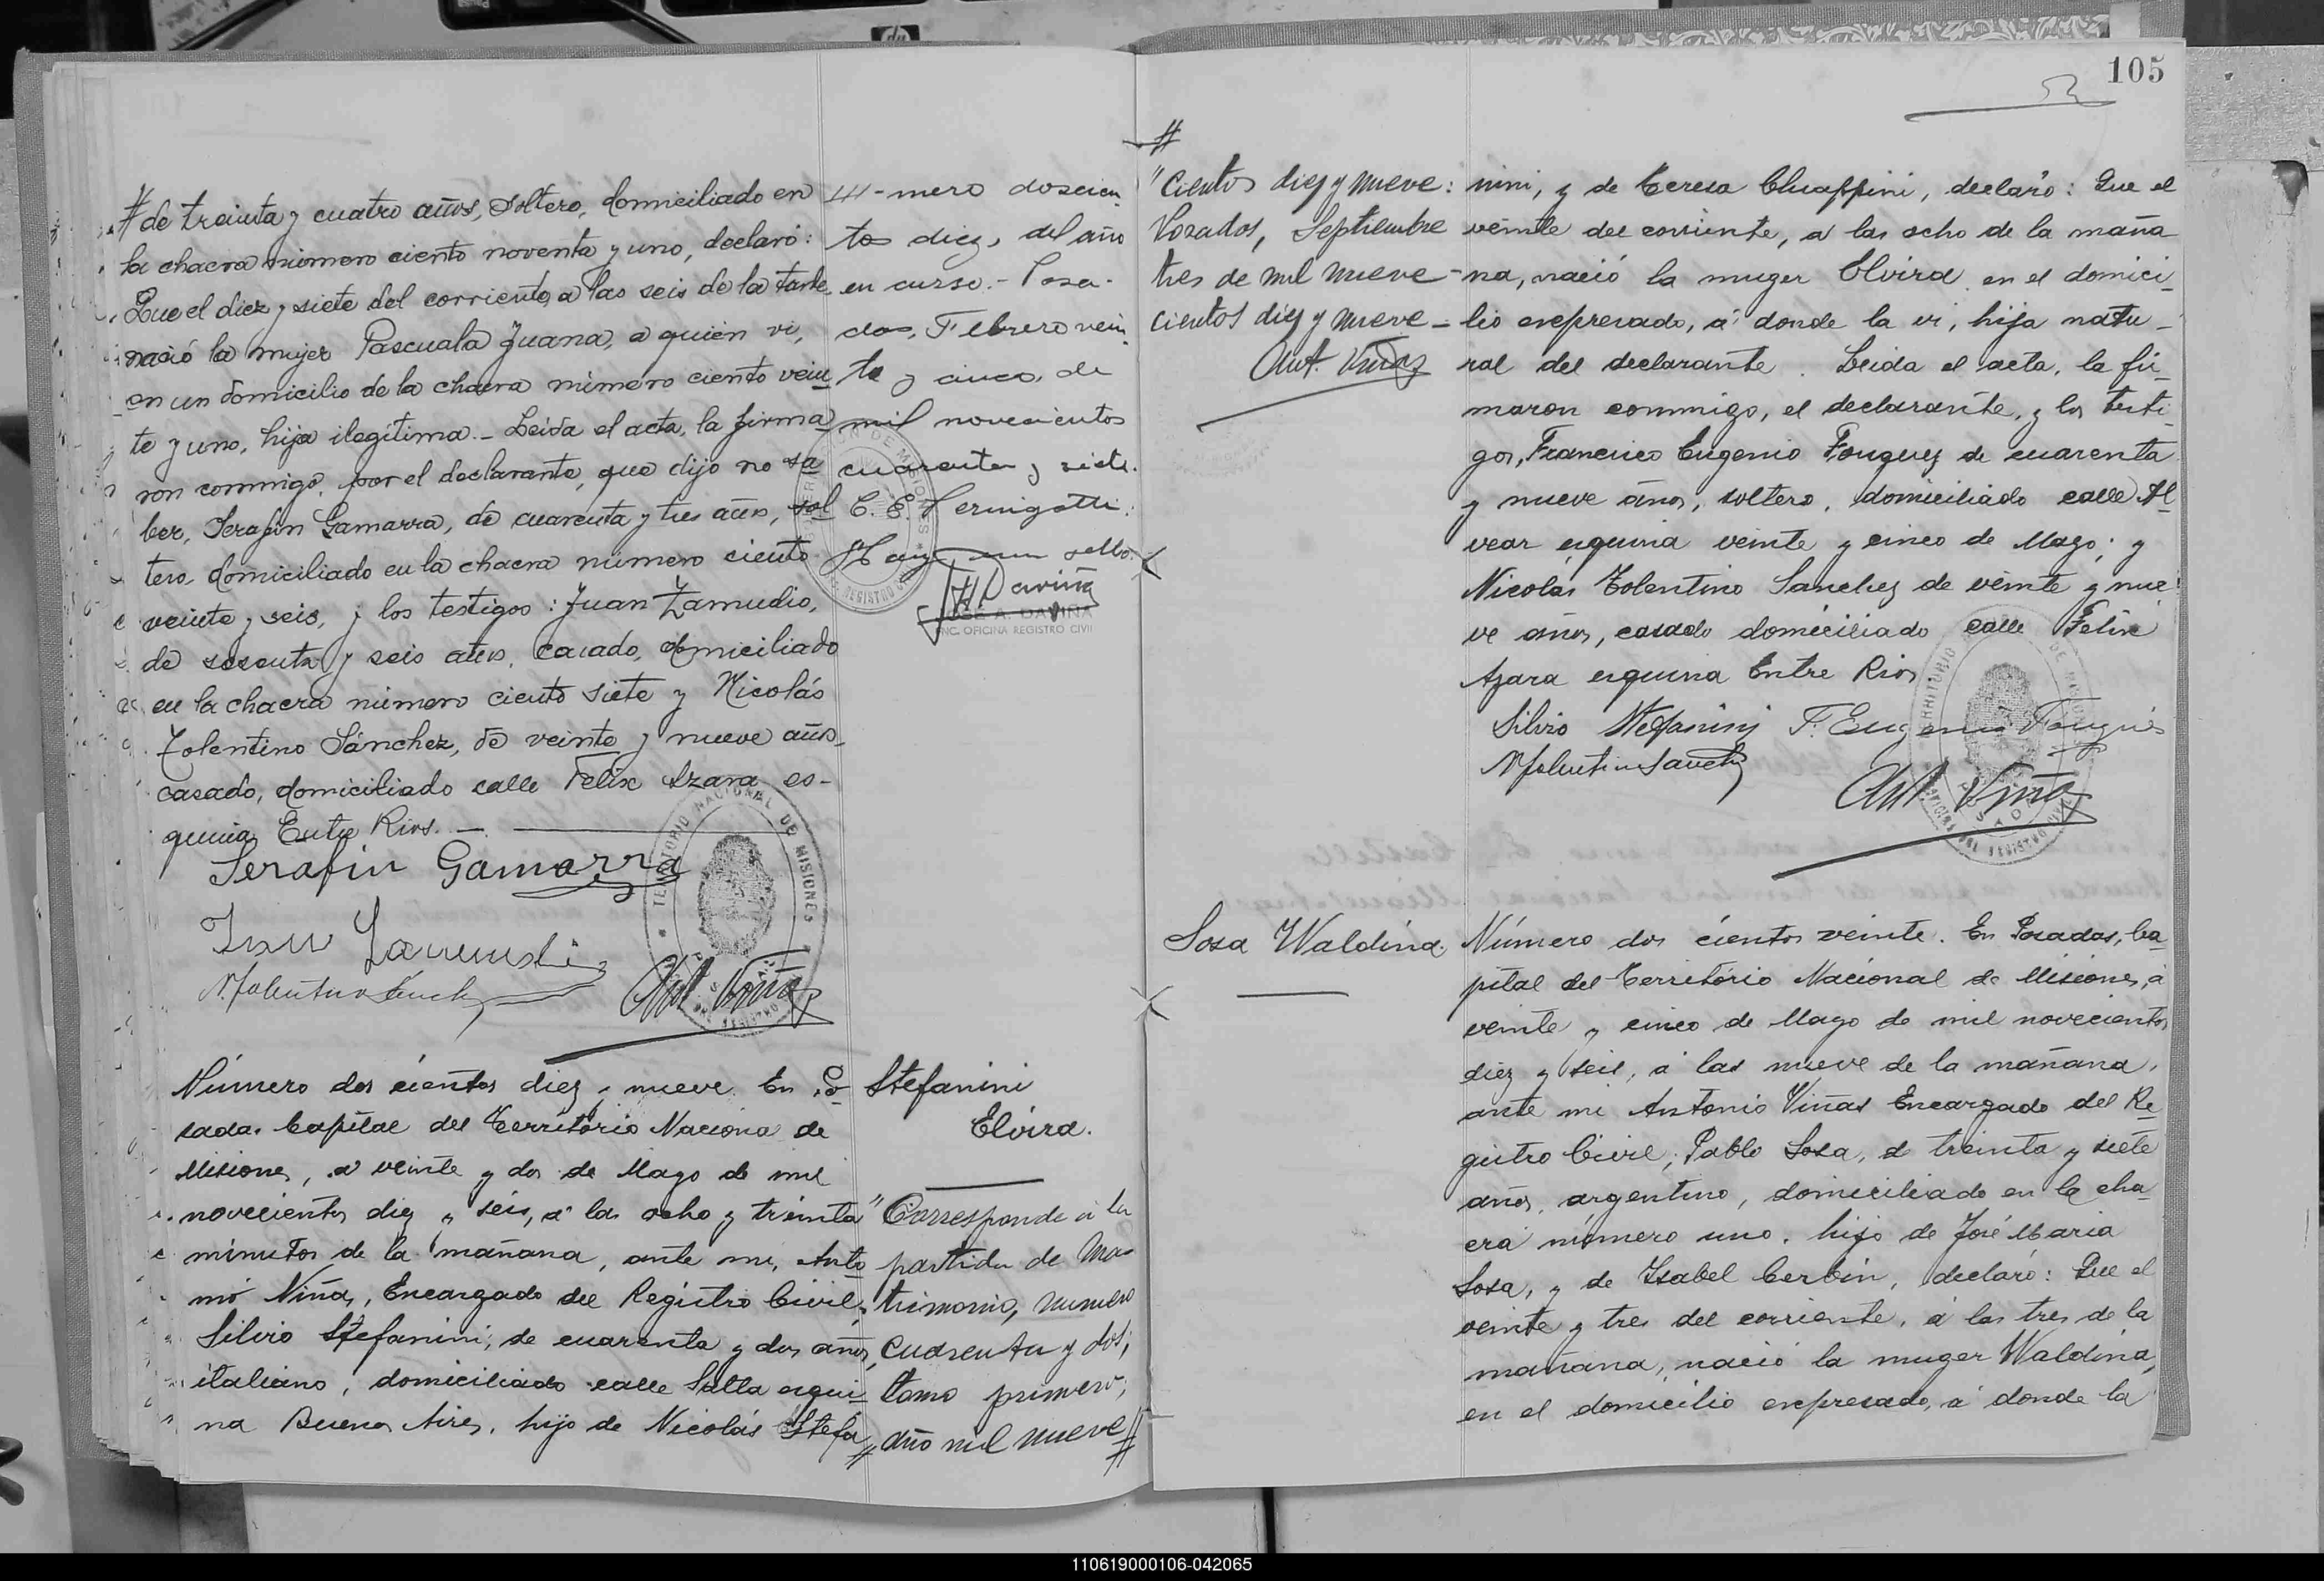 # de treinta y cuatro años, soltero, domiciliado en
la chacra número ciento noventa y uno, declaró:
Que el diez y siete del corriente, a las seis de la tarde
nació la mujer Pascuala Juana, a quien vi,
en un domicilio de la chacra número ciento vein
te y uno, hija ilegítima.- Leída el acta, la firma
ron conmigo, por el declarante, que dijo no sa
ber, Serafin Gamarra, de cuarenta y tres años, sol
tero, domiciliado en la chacra número ciento
veinte y seis, y los testigos: Juan Zamudio,
de sesenta y seis años, casado, domiciliado
en la chacra número ciento siete y Nicolás
Tolentino Sánchez, de veinte y nueve años
casado, domiciliado calle Felix Azara es-
quina Entre Rios. —
Serafin Gamarra
TERRITORIO NACIONAL DE MISIONES
Número dos cientos diez y nueve. En Po-
sadas Capital del Territorio Naciona de
Misiones, a veinte y dos de Mayo de mil
novecientos diez y seis, á las ocho y treinta
minutos de la mañana, ante mi, Anto
nio Viñas, Encargado del Registro Civil,
Silvio Stefanini, de cuarenta y dos años
italiano, domiciliado calle Salta esqui
na Buenos Aires, hijo de Nicolás Stefa
-mero doscien
tos diez, del año
en curso.- Posa-
das, Febrero vein
te y cinco, de
mil novecientos
cuarenta y siete.
Hay un sello.
JOSE A. DAVIÑA
ENC. OFICINA REGISTRO CIVIL
Stefanini
Elvira.
"Corresponde á la
partida de Ma-
trimonio, numero
cuarenta y dos,
tomo primero,
año mil nueve #
105
#
"cientos diez y nueve:
Posadas, Septiembre
tres de mil nueve-
cientos diez y nueve-
Ant. Viñas
nini, y de Teresa Chiappini, declaró: Que el
veinte del corriente, a las ocho de la maña
na, nació la muger Elvira en el domici-
lio expresado, á donde la vi, hija natu-
ral del declarante. Leida el acta, la fir-
maron conmigo, el declarante, y los testi-
gos, Francisco Eugenio Fouquez de cuarenta
y nueve años, soltero, domiciliado calle Al
vear esquina veinte y cinco de Mayo; y
Nicolás Tolentino Sanchez de veinte y nue
ve años, casado domiciliado calle Felix
Azara esquina Entre Rios
Silvio Stefanini F. Eugenio Fouquez
Ant Viñas
Sosa Waldina.
Número dos cientos veinte. En Posadas, Ca-
pital del Território Nacional de Misiones, á
veinte y cinco de Mayo de mil novecientos
diez y seis, á las nueve de la mañana,
ante mi Antonio Viñas Encargado del Re
gistro Civil, Pablo Sosa, de treinta y siete
años, argentino, domiciliado en la cha-
cra número uno, hijo de José Maria
Sosa, y de Isabel Cerbin, declaró: Que el
veinte y tres del corriente, á las tres de la
mañana, nació la muger Waldina,
en el domicilio expresado, á donde la
110619000106-042065